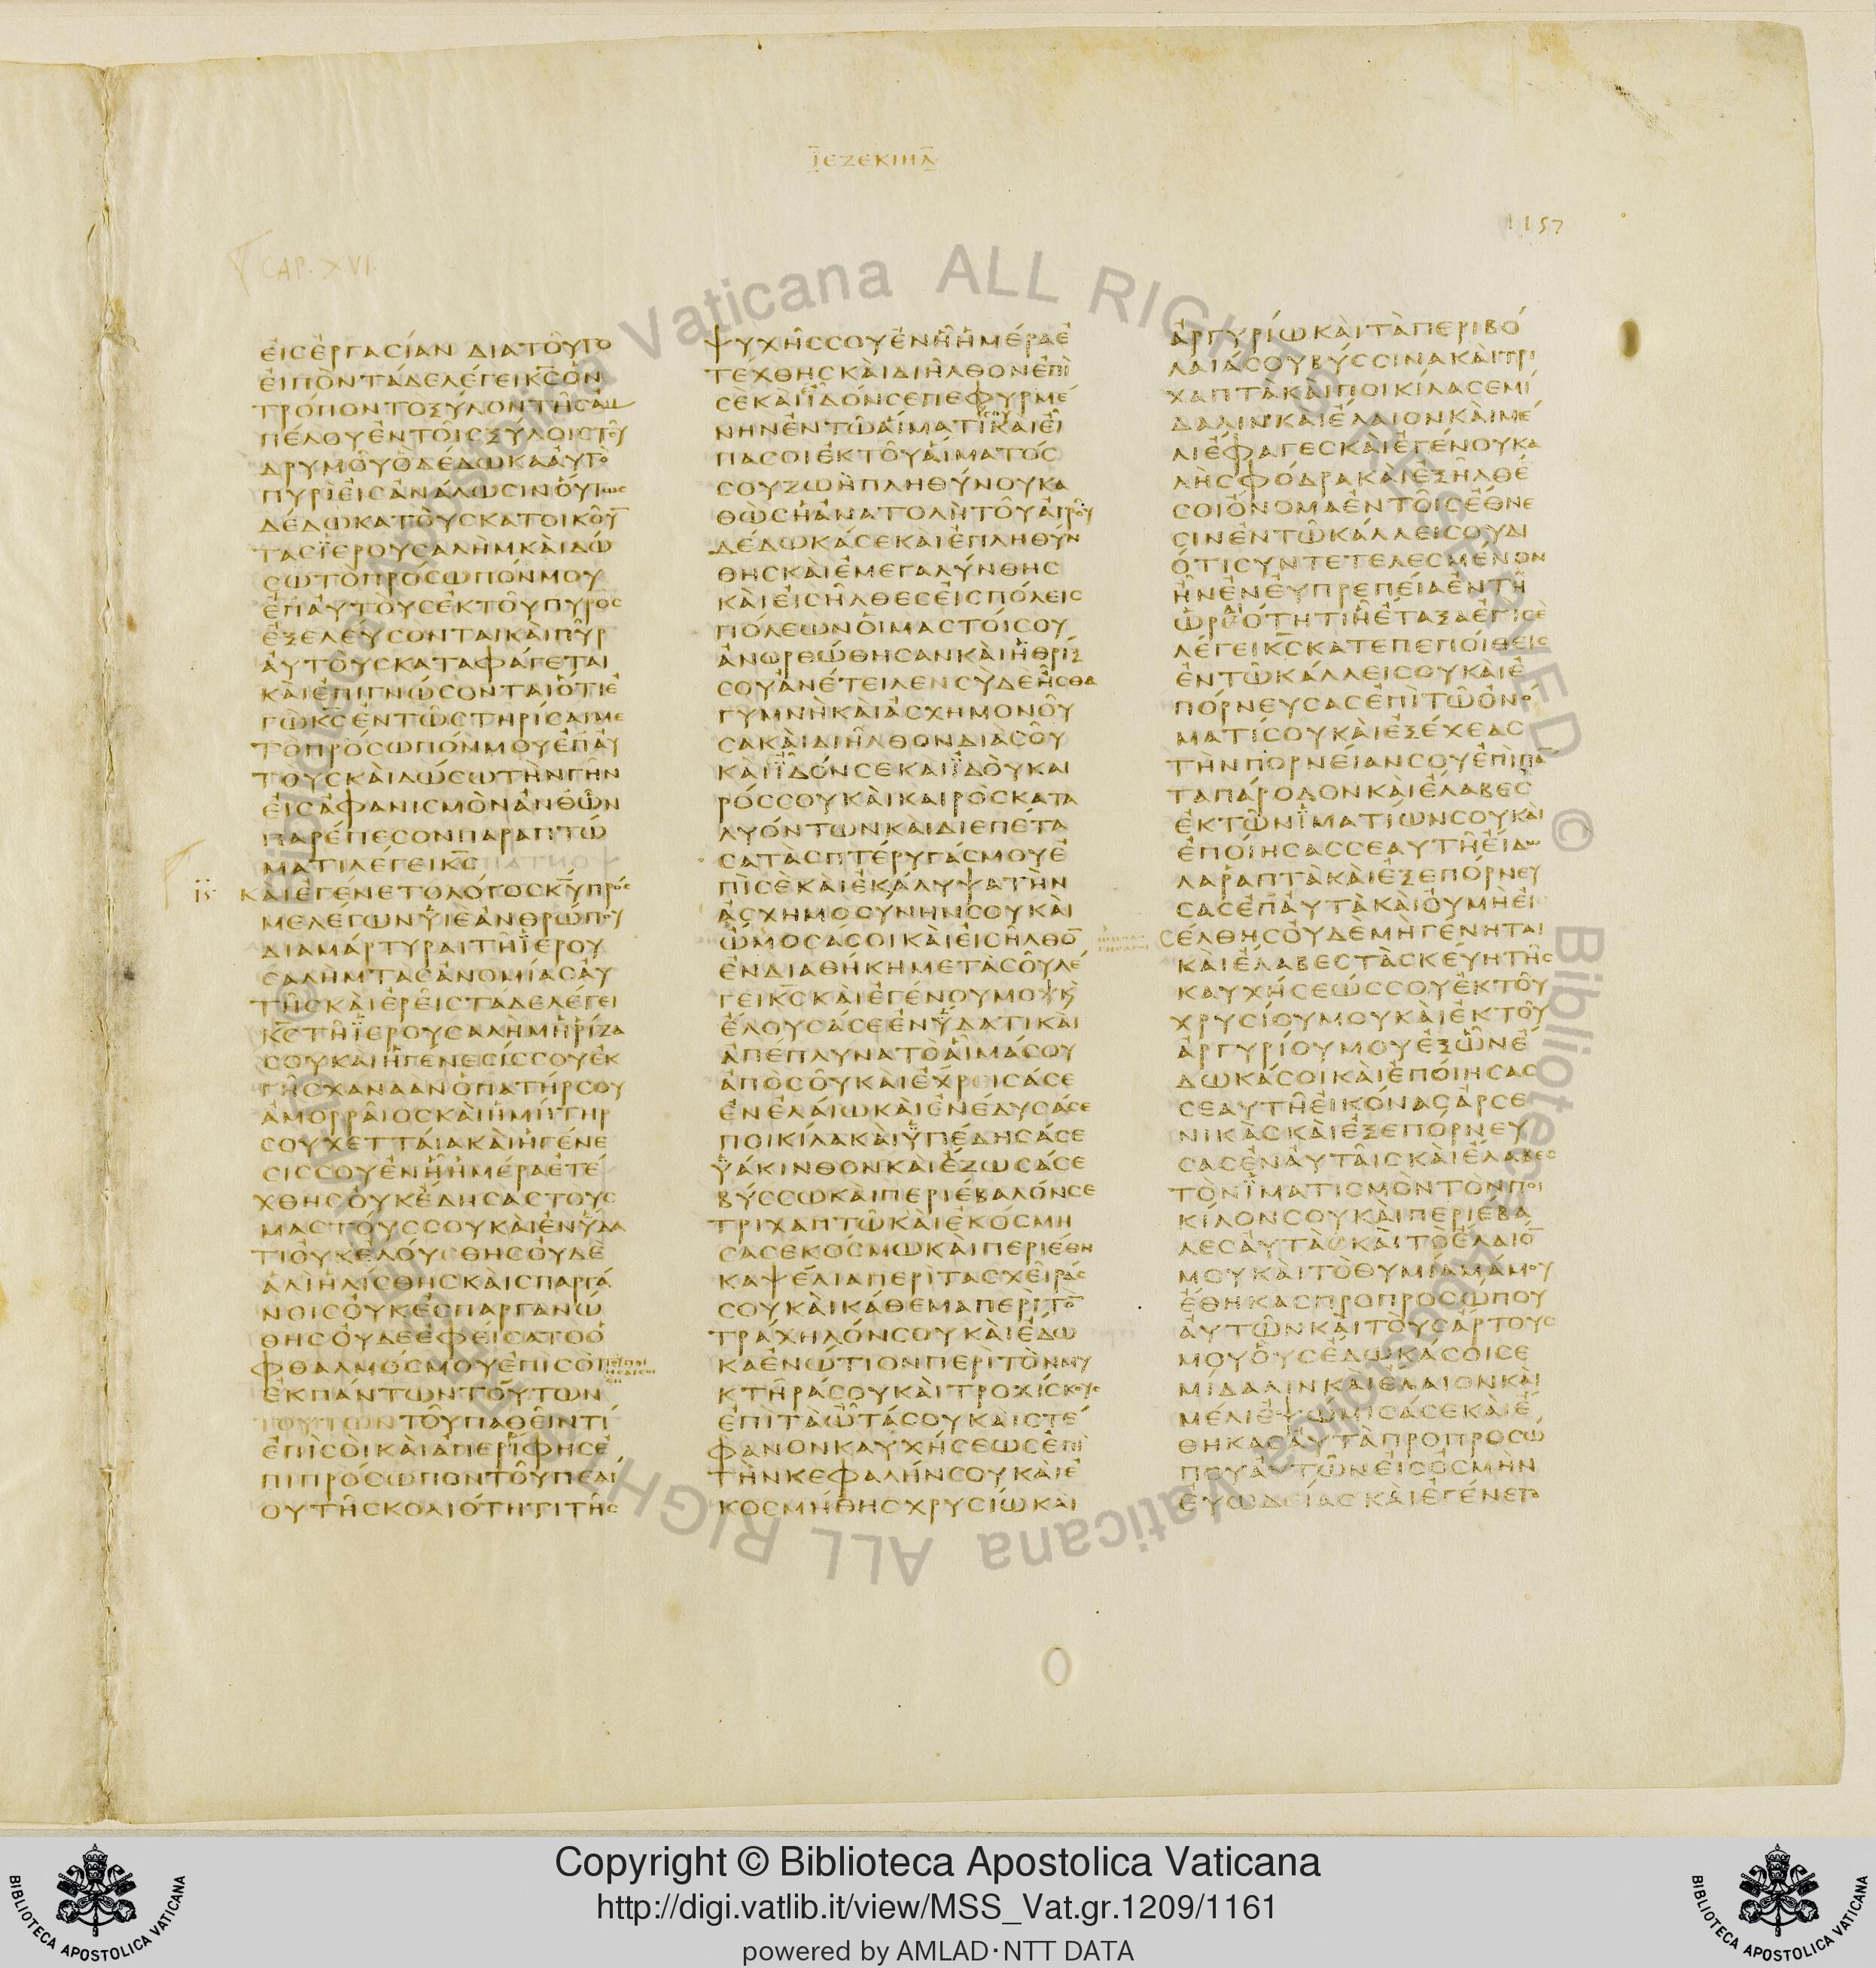 ΙΕΖΕΚΙΗΛ
1157
CAP. XVI.
ΕΙCΕΡΓΑCΙΑΝ ΔΙΑΤΟΥΤΟ
ΕΙΠΟΝΤΑΔΕΛΕΓΕΙΚ̅C̅ΟΝ
ΤΡΟΠΟΝΤΟΞΥΛΟΝΤΗCΑΜ
ΠΕΛΟΥΕΝΤΟΙCΞΥΛΟΙCΤΟΥ
ΔΡΥΜΟΥΟΔΕΔΩΚΑΑΥΤΟ
ΠΥΡΙΕΙCΑΝΑΛΩCΙΝΟΥΤΩC
ΔΕΔΩΚΑΤΟΥCΚΑΤΟΙΚΟΥ̅
ΤΑCΪΕΡΟΥCΑΛΗΜΚΑΙΔΩ
CΩΤΟΠΡΟCΩΠΟΝΜΟΥ
ΕΠΑΥΤΟΥCΕΚΤΟΥΠΥΡΟC
ΕΞΕΛΕΥCΟΝΤΑΙΚΑΙΠΥΡ
ΑΥΤΟΥCΚΑΤΑΦΑΓΕΤΑΙ
ΚΑΙΕΠΙΓΝΩCΟΝΤΑΙΟΤΙΕ
ΓΩΚ̅C̅ΕΝΤΩCΤΗΡΙCΑΙΜΕ
ΤΟΠΡΟCΩΠΟΝΜΟΥΕΠΑΥ
ΤΟΥCΚΑΙΔΩCΩΤΗΝΓΗΝ
ΕΙCΑΦΑΝΙCΜΟΝΑΝΘΩΝ
ΠΑΡΕΠΕCΟΝΠΑΡΑΠΤΩ
ΜΑΤΙΛΕΓΕΙΚ̅C̅
ΚΑΙΕΓΕΝΕΤΟΛΟΓΟCΚ̅Υ̅ΠΡΟC
ΜΕΛΕΓΩΝΥΙΕΑΝΘΡΩΠΟΥ
ΔΙΑΜΑΡΤΥΡΑΙΤΗΪΕΡΟΥ
CΑΛΗΜΤΑCΑΝΟΜΙΑCΑΥ
ΤΗCΚΑΙΕΡΕΙCΤΑΔΕΛΕΓΕΙ
Κ̅C̅ΤΗΪΕΡΟΥCΑΛΗΜΗΡΙΖΑ
CΟΥΚΑΙΗΓΕΝΕCΙCCΟΥΕΚ
ΓΗCΧΑΝΑΑΝΟΠΑΤΗΡCΟΥ
ΑΜΟΡΡΑΙΟCΚΑΙΗΜΗΤΗΡ
CΟΥΧΕΤΤΑΙΑΚΑΙΗΓΕΝΕ
CΙCCΟΥΕΝΗΗΜΕΡΑΕΤΕ
ΧΘΗCΟΥΚΕΔΗCΑCΤΟΥC
ΜΑCΤΟΥCCΟΥΚΑΙΕΝΥΔΑ
ΤΙΟΥΚΕΛΟΥCΘΗCΟΥΔΕ
ΑΛΙΗΛΙCΘΗCΚΑΙCΠΑΡΓΑ
ΝΟΙCΟΥΚΕCΠΑΡΓΑΝΩ
ΘΗCΟΥΔΕΕΦΕΙCΑΤΟΟ
ΦΘΑΛΜΟCΜΟΥΕΠΙCΟΙ
ΕΚΠΑΝΤΩΝΤΟΥΤΩΝ
ΤΟΥΤΩΝΤΟΥΠΑΘΕΙΝΤΙ
ΕΠΙCΟΙΚΑΙΑΠΕΡΙΦΗCΕ
ΠΙΠΡΟCΩΠΟΝΤΟΥΠΕΔΙ
ΟΥΤΗCΚΟΛΙΟΤΗΤΙΤΗC
ΨΥΧΗCCΟΥΕΝΗΗΜΕΡΑΕ
ΤΕΧΘΗCΚΑΙΔΙΗΛΘΟΝΕΠΙ
CΕΚΑΙΪΔΟΝCΕΠΕΦΥΡΜΕ
ΝΗΝΕΝΤΩΑΙΜΑΤΙΚΑΙΕΙ
ΠΑCΟΙΕΚΤΟΥΑΙΜΑΤΟC
CΟΥΖΩΗΠΛΗΘΥΝΟΥΚΑ
ΘΩCΗΑΝΑΤΟΛΗΤΟΥΑΓΡΟΥ
ΔΕΔΩΚΑCΕΚΑΙΕΠΛΗΘΥΝ
ΘΗCΚΑΙΕΜΕΓΑΛΥΝΘΗC
ΚΑΙΕΙCΗΛΘΕCΕΙCΠΟΛΕΙC
ΠΟΛΕΩΝΟΙΜΑCΤΟΙCΟΥ
ΑΝΩΡΘΩΘΗCΑΝΚΑΙΗΘΡΙΞ
CΟΥΑΝΕΤΕΙΛΕΝCΥΔΕΗCΘΑ
ΓΥΜΝΗΚΑΙΑCΧΗΜΟΝΟΥ
CΑΚΑΙΔΙΗΛΘΟΝΔΙΑCΟΥ
ΚΑΙΪΔΟΝCΕΚΑΙΪΔΟΥΚΑΙ
ΡΟCCΟΥΚΑΙΚΑΙΡΟCΚΑΤΑ
ΛΥΟΝΤΩΝΚΑΙΔΙΕΠΕΤΑ
CΑΤΑCΠΤΕΡΥΓΑCΜΟΥΕ
ΠΙCΕΚΑΙΕΚΑΛΥΨΑΤΗΝ
ΑCΧΗΜΟCΥΝΗΝCΟΥΚΑΙ
ΩΜΟCΑCΟΙΚΑΙΕΙCΗΛΘΟ̅
ΕΝΔΙΑΘΗΚΗΜΕΤΑCΟΥΛΕ
ΓΕΙΚ̅C̅ΚΑΙΕΓΕΝΟΥΜΟΙΚΑΙ
ΕΛΟΥCΑCΕΕΝΥΔΑΤΙΚΑΙ
ΑΠΕΠΛΥΝΑΤΟΑΙΜΑCΟΥ
ΑΠΟCΟΥΚΑΙΕΧΡΕΙCΑCΕ
ΕΝΕΛΑΙΩΚΑΙΕΝΕΔΥCΑCΕ
ΠΟΙΚΙΛΑΚΑΙΥΠΕΔΗCΑCΕ
ΥΑΚΙΝΘΟΝΚΑΙΕΖΩCΑCΕ
ΒΥCCΩΚΑΙΠΕΡΙΕΒΑΛΟΝCΕ
ΤΡΙΧΑΠΤΩΚΑΙΕΚΟCΜΗ
CΑCΕΚΟCΜΩΚΑΙΠΕΡΙΕΘΗ
ΚΑΨΕΛΙΑΠΕΡΙΤΑCΧΕΙΡΑC
CΟΥΚΑΙΚΑΘΕΜΑΠΕΡΙΤΟ̅
ΤΡΑΧΗΛΟΝCΟΥΚΑΙΕΔΩ
ΚΑΕΝΩΤΙΟΝΠΕΡΙΤΟΝΜΥ
ΚΤΗΡΑCΟΥΚΑΙΤΡΟΧΙCΚΟΥC
ΕΠΙΤΑΩΤΑCΟΥΚΑΙCΤΕ
ΦΑΝΟΝΚΑΥΧΗCΕΩCΕΠΙ
ΤΗΝΚΕΦΑΛΗΝCΟΥΚΑΙΕ
ΚΟCΜΗΘΗCΧΡΥCΙΩΚΑΙ
ΑΡΓΥΡΙΩΚΑΙΤΑΠΕΡΙΒΟ
ΛΑΙΑCΟΥΒΥCCΙΝΑΚΑΙΤΡΙ
ΧΑΠΤΑΚΑΙΠΟΙΚΙΛΑCΕΜΙ
ΔΑΛΙΝΚΑΙΕΛΑΙΟΝΚΑΙΜΕ
ΛΙΕΦΑΓΕCΚΑΙΕΓΕΝΟΥΚΑ
ΛΗCΦΟΔΡΑΚΑΙΕΞΗΛΘΕ
CΟΙΟΝΟΜΑΕΝΤΟΙCΕΘΝΕ
CΙΝΕΝΤΩΚΑΛΛΕΙCΟΥΔΙ
ΟΤΙCΥΝΤΕΤΕΛΕCΜΕΝΟΝ
ΗΝΕΝΕΥΠΡΕΠΕΙΑΕΝΤΗ
ΩΡΑΙΟΤΗΤΙΗΕΤΑΞΑΕΠΙCΕ
ΛΕΓΕΙΚ̅C̅ΚΑΤΕΠΕΠΟΙΘΕΙC
ΕΝΤΩΚΑΛΛΕΙCΟΥΚΑΙΕ
ΠΟΡΝΕΥCΑCΕΠΙΤΩΟΝΟ
ΜΑΤΙCΟΥΚΑΙΕΞΕΧΕΑC
ΤΗΝΠΟΡΝΕΙΑΝCΟΥΕΠΙΠΑ̅
ΤΑΠΑΡΟΔΟΝΚΑΙΕΛΑΒΕC
ΕΚΤΩΝΪΜΑΤΙΩΝCΟΥΚΑΙ
ΕΠΟΙΗCΑCCΕΑΥΤΗΕΙΔΩ
ΛΑΡΑΠΤΑΚΑΙΕΞΕΠΟΡΝΕΥ
CΑCΕΠΑΥΤΑΚΑΙΟΥΜΗΕΙ
CΕΛΘΗCΟΥΔΕΜΗΓΕΝΗΤΑΙ
ΚΑΙΕΛΑΒΕCΤΑCΚΕΥΗΤΗC
ΚΑΥΧΗCΕΩCCΟΥΕΚΤΟΥ
ΧΡΥCΙΟΥΜΟΥΚΑΙΕΚΤΟΥ
ΑΡΓΥΡΙΟΥΜΟΥΕΞΩΝΕ
ΔΩΚΑCΟΙΚΑΙΕΠΟΙΗCΑC
CΕΑΥΤΗΕΙΚΟΝΑCΑΡCΕ
ΝΙΚΑCΚΑΙΕΞΕΠΟΡΝΕΥ
CΑCΕΝΑΥΤΑΙCΚΑΙΕΛΑΒΕC
ΤΟΝΪΜΑΤΙCΜΟΝΤΟΝΠΟΙ
ΚΙΛΟΝCΟΥΚΑΙΠΕΡΙΕΒΑ
ΛΕCΑΥΤΑΚΑΙΤΟΕΛΑΙΟ̅
ΜΟΥΚΑΙΤΟΘΥΜΙΑΜΑΜΟΥ
ΕΘΗΚΑCΠΡΟΠΡΟCΩΠΟΥ
ΑΥΤΩΝΚΑΙΤΟΥCΑΡΤΟΥC
ΜΟΥΟΥCΕΔΩΚΑCΟΙCΕ
ΜΙΔΑΛΙΝΚΑΙΕΛΑΙΟΝΚΑΙ
ΜΕΛΙΕΨΩΜΙCΑCΕΚΑΙΕ
ΘΗΚΑCΑΥΤΑΠΡΟΠΡΟCΩ
ΠΟΥΑΥΤΩΝΕΙCΟCΜΗΝ
ΕΥΩΔΕΙΑCΚΑΙΕΓΕΝΕΤΟ
ALL RIGHTS RESERVED © Biblioteca Apostolica Vaticana
Copyright © Biblioteca Apostolica Vaticana
http://digi.vatlib.it/view/MSS_Vat.gr.1209/1161
powered by AMLAD·NTT DATA
BIBLIOTECA APOSTOLICA VATICANA
BIBLIOTECA APOSTOLICA VATICANA